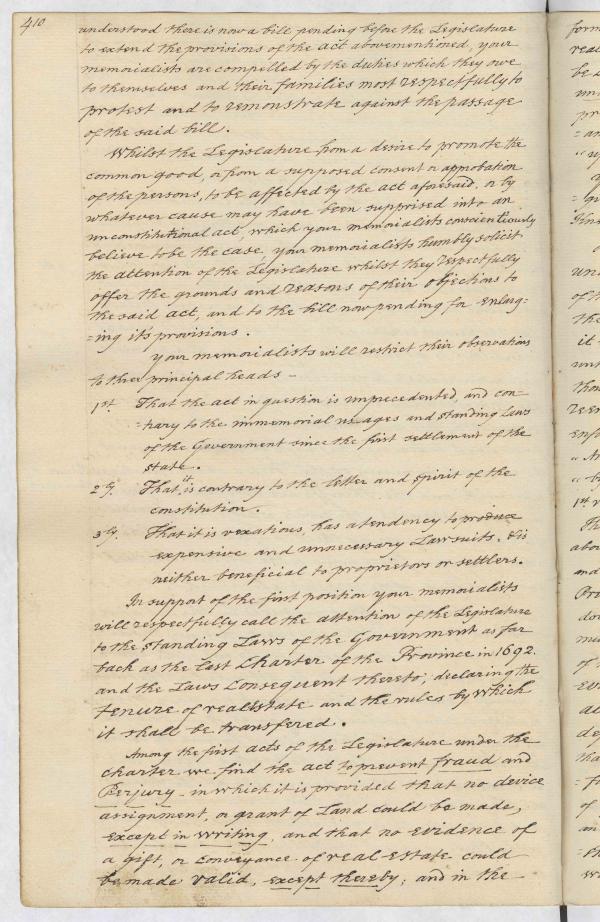 410
understood there is now a bill pending before the Legislature
to extend the provisions of the act abovementioned, your
memorialists are compelled by the duties which they owe
to themselves and their families most respectfully to
protest and to remonstrate against the passage
of the said bill.
Whilst the Legislature from a desire to promote the
common good, or from a supposed consent or approbation
of the persons, to be affected by the act aforesaid, or by
whatever cause may have been supprised into an
unconstitutional act, which your memorialists conscientiously
believe to be the case, your memorialists humbly solicit
the attention of the Legislature whilst they respectfully
offer the grounds and reasons of their objections to
the said act, and to the bill now pending for enlarg=
=ing it's provisions.
Your memorialists will restrict their observations
to three principal heads –
1st. That the act in question is unprecedented, and con=
=trary to the immemorial usages and standing Laws
of the Government since the first settlement of the
state.
2ly. That it is contrary to the letter and spirit of the
constitution.
3ly. That it is vexatious, has a tendency to produce
expensive and unnecessary Lawsuits, & is
neither beneficial to proprietors or settlers.
In support of the first position your memorialists
will respectfully call the attention of the Legislature
to the standing Laws of the Government as far
back as the last Charter of the Province in 1692.
and the Laws Consequent thereto, declaring the
tenure of real estate and the rules by which
it shall be transfered.
Among the first acts of the Legislature under the
charter we find the act to prevent fraud and
Perjury, in which it is provided that no device
assignment, or grant of Land could be made,
except in writing, and that no evidence of
a gift, or Conveyance of real estate could
be made valid, except thereby; and in the